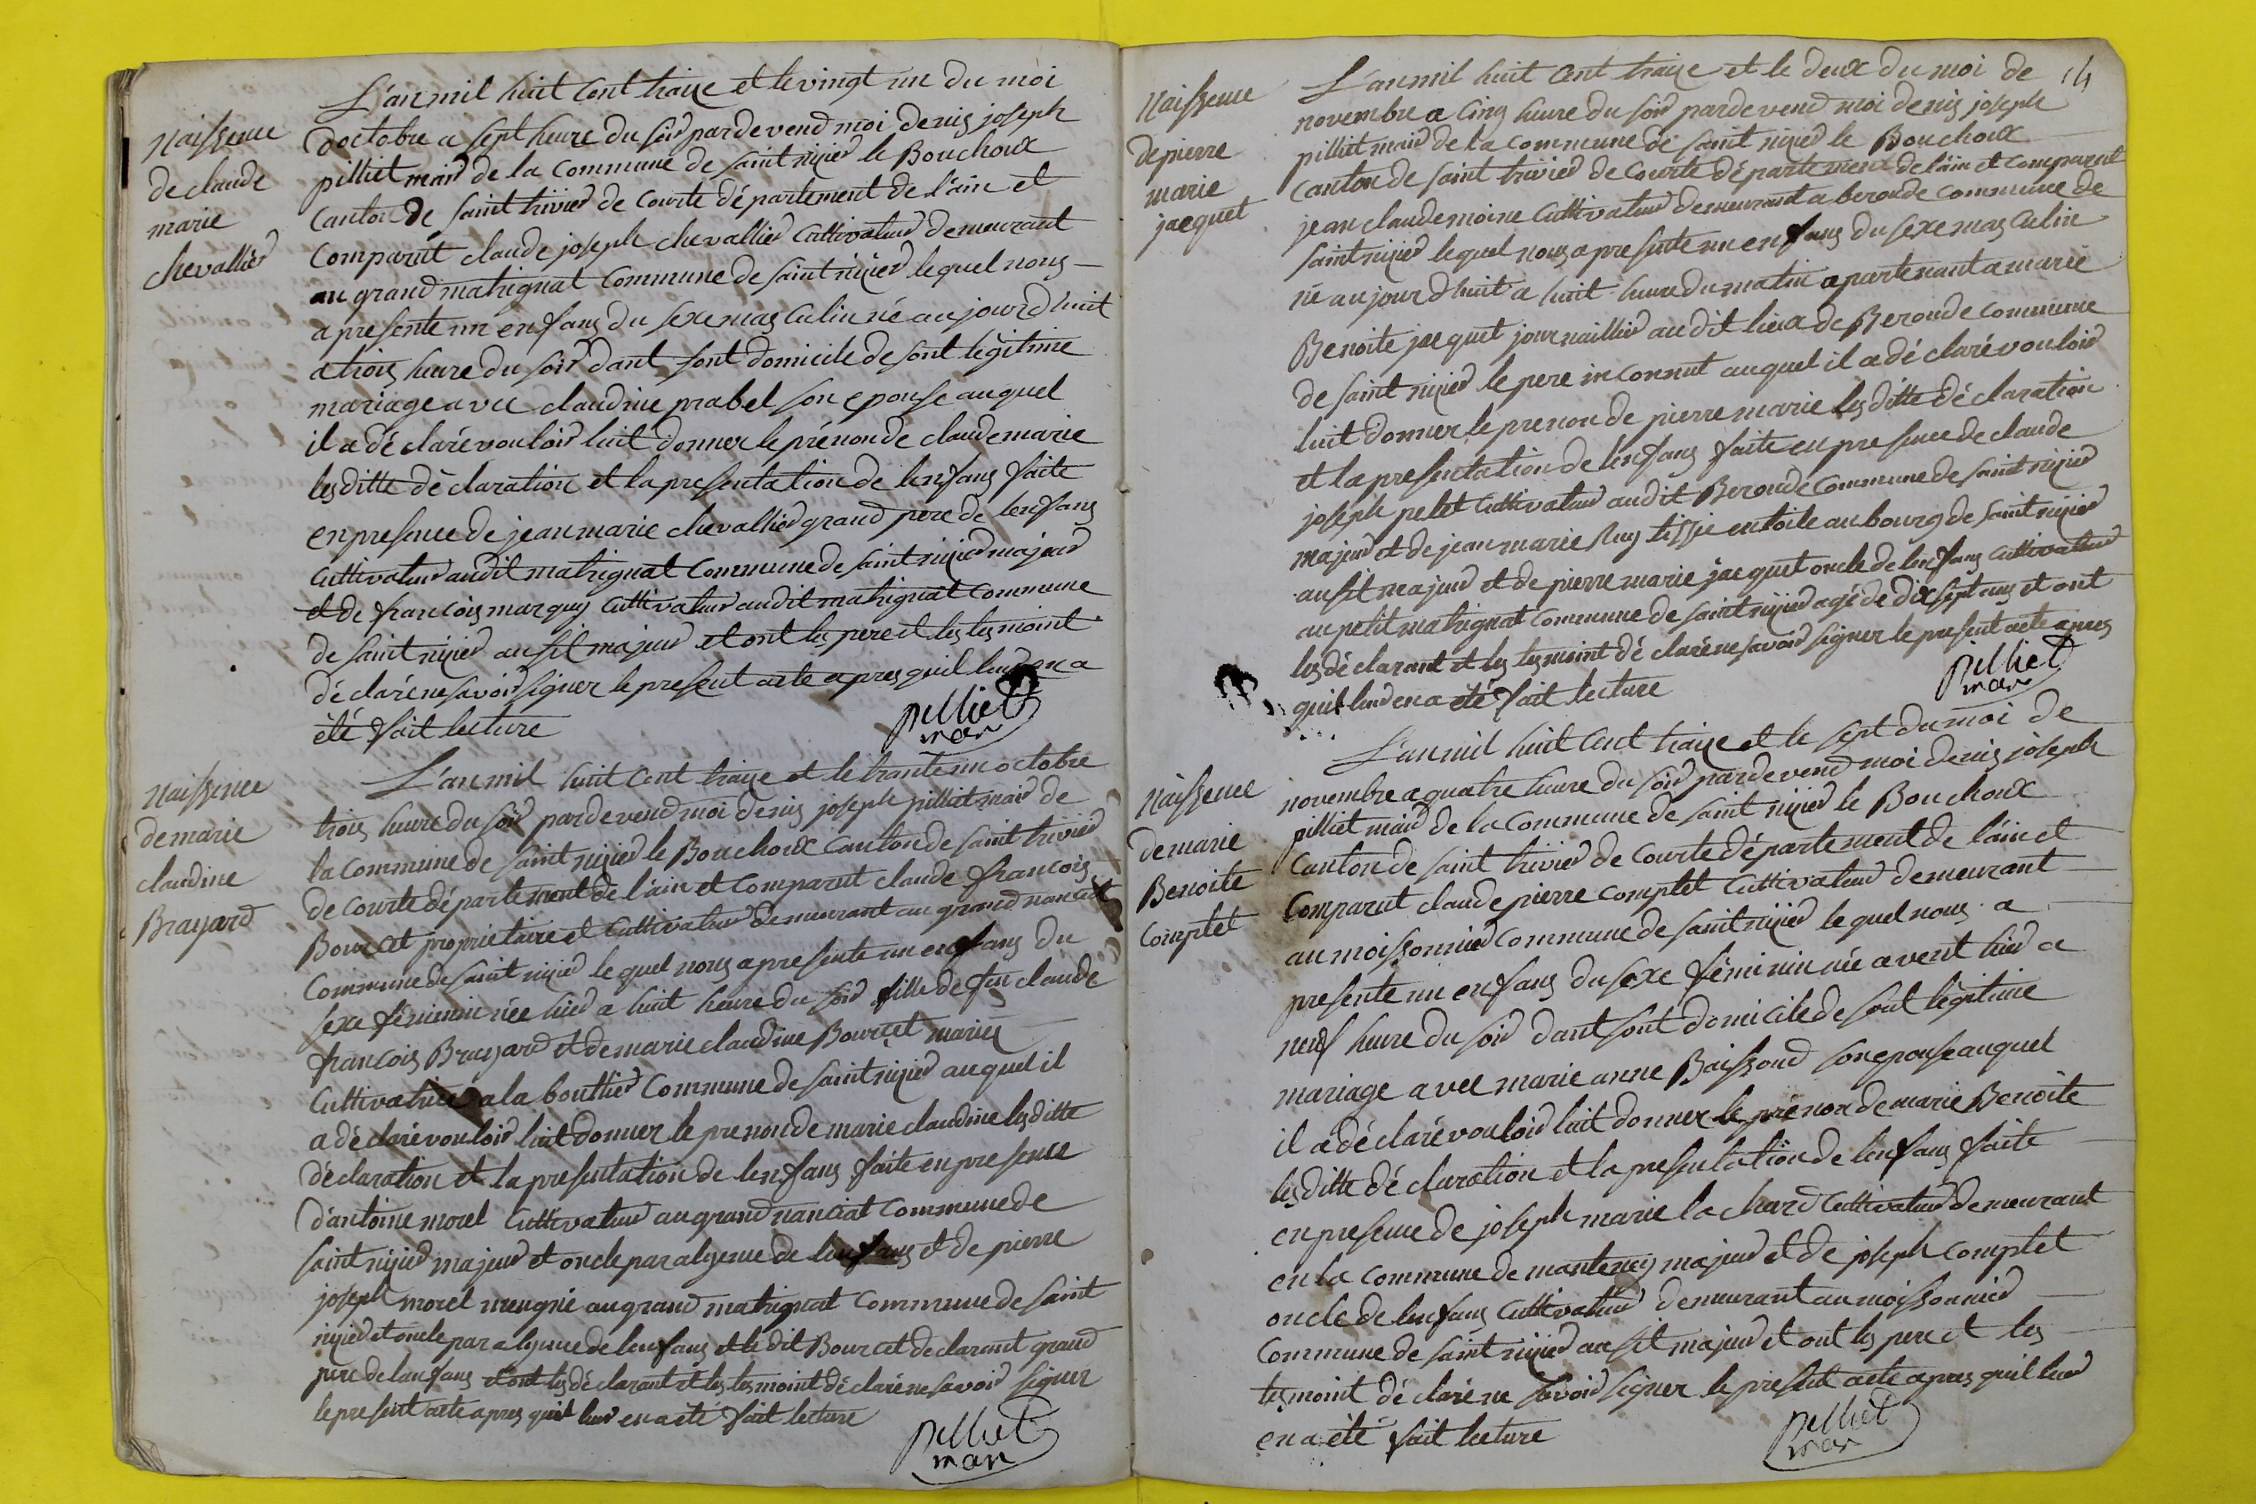 Naissence
de claude
marie
chevallier
L'an mil huit cent traize et le vingt un du moi
doctobre a sept heure du soir pardevend moi denis joseph
pilliet mair de la commune de saint nizier le Bouchoux
canton de saint trivier de courte département de l'ain et
comparut claude joseph chevallier cultivateur demeurant
au grand matrignat commune de saint nizier lequel nous
a presente un enfans du sexe masculin né aujourdhuit
a trois heure du soir dant sont domicile de sont légitime
mariage avec claudine prabel son epouse auquel
il a déclaré vouloir luit donner le prénon de claude marie
lesditte déclaration et la presentation de lenfans faite
en presence de jean marie chevallier grand pere de lenfans
cultivateur audit matrignat commune de saint nizier majeur
et de francois marquy cultivateur audit matrignat commune
de saint nizier ausit majeur et ont les pere et les tesmoint
déclaré ne savoir signer le present acte apres quil leur en a
été fait lecture
pilliet
mair
Naissence
de marie
claudine
Brayard
L'an mil huit cent traize et le trante un octobre
trois heure du soir pardevend moi denis joseph pilliet mair de
la commune de saint nizier le Bouchoux canton de saint trivier
de courte département de l'ain et comparut claude francois
Bourcet proprietaire et cultivateur demeurant au grand nanciat
commune de saint nizier lequel nous a presente un enfans du
sexe féminin née hier a huit heure du soir fille de feu claude
francois Brayard et de marie claudine Bourcet mariés
cultivatrice a la bouthier commune de saint nizier auquel il
a déclaré vouloir luit donner le prenon de marie claudine lesditte
déclaration et la presentation de lenfans faite en presence
d'antoine morel cultivateur au grand nanciat commune de
saint nizier majeur et oncle par alyence de lenfans et de pierre
joseph morel meugnié au grand matrignat commune de saint
nizier et oncle par alyence de lenfans et le dit Bourcet declarant grand
pere de lanfans et ont les déclarant et les tesmoint déclaré ne savoir signer
le present acte apres quil leur en a été fait lecture
pilliet
mair
14
Naissence
de pierre
marie
jacquet
L'an mil huit cent traize et le deux du moi de
novembre a cinq heure du soir pardevend moi denis joseph
pilliet mair de la commune de saint nizier le Bouchoux
canton de saint trivier de courte département de l'ain et comparut
jean claude moine cultivateur demeurant a beronde commune de
saint nizier lequel nous a presente un enfans du sexe masculin
né aujourdhuit a huit heure du matin apartenant a marie
Benoite jacquet journaillier audit lieux de Beronde commune
de saint nizier le pere inconnut auquel il a déclaré vouloir
luit donner le prenon de pierre marie lesditte déclaration
et la presentation de lenfans faite en presence de claude
joseph petet cultivateur audit Beronde commune de saint nizier
majeur et de jean marie tissié entoile au bourg de saint nizier
ausit majeur et de pierre marie jacquet oncle de lenfans cultivateur
au petit matrignat commune de saint nizier agé de dix sept ans et ont
les déclarant et les tesmoint déclaré ne savoir signer le present acte apres
quil leur en a été fait lecture
pilliet
mair
Naissence
de marie
Benoite
complet
L'an mil huit cent traize et le sept du moi de
novembre a quatre heure du soir pardevend moi denis joseph
pilliet mair de la commune de saint nizier le Bouchoux
canton de saint trivier de courte département de l'ain et
comparut claude pierre complet cultivateur demeurant
au moissonnier commune de saint nizier lequel nous a
presente un enfans du sexe féminin née avent hier a
neuf heure du soir dant sont domicile de sont légitime
mariage avec marie anne Baissoud son epouse auquel
il a déclaré vouloir luit donner le prénon de marie Benoite
lesditte déclaration et la presentation de lenfans faite
en presence de joseph marie lachard cultivateur demeurant
en la commune de mantenay majeur et de joseph complet
oncle de lenfans cultivateur demeurant au moissonnier
commune de saint nizier ausit majeur et ont les pere et les
tesmoint déclaré ne savoir signer le present acte apres quil leur
en a été fait lecture
pilliet
mair